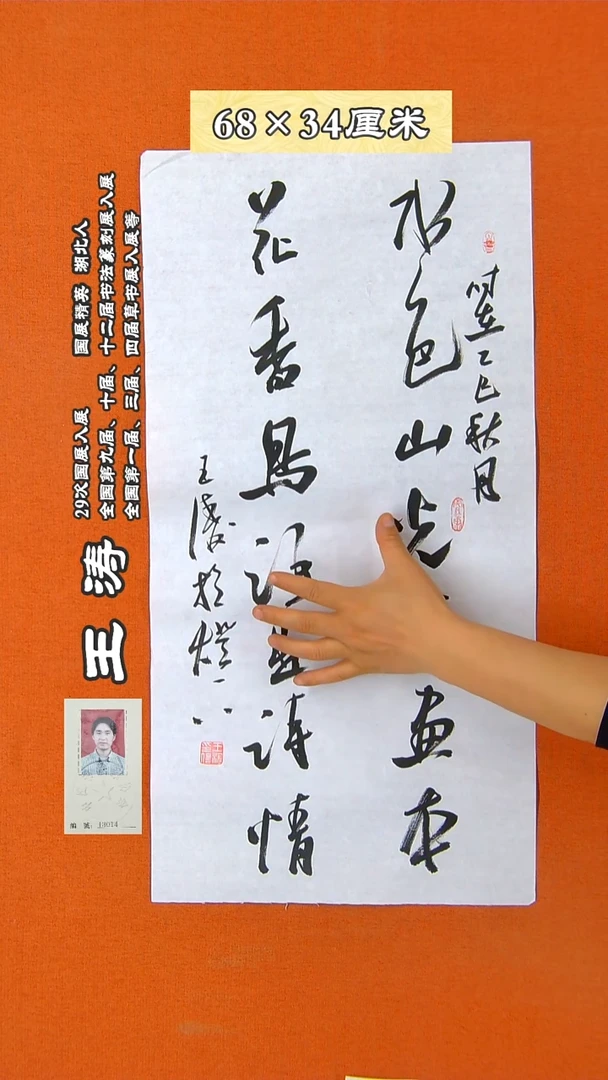 68×34厘米
时在乙巳秋月
水色山光画本
花香鸟语诗情
王涛於燈下
29次国展入展 国展精英 湖北人
全国第九届、十届、十二届书法篆刻展入展
全国第一届、三届、四届草书展入展等
王 涛
编 号: